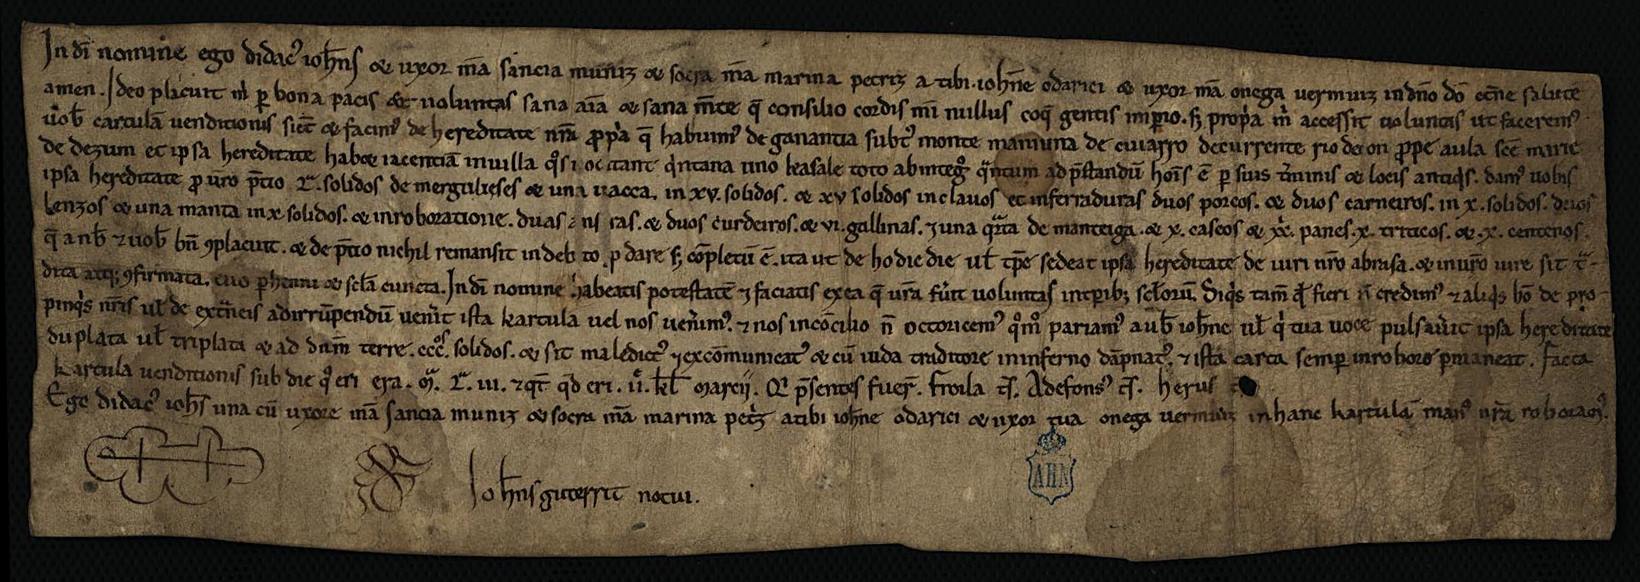 In dī nomine ego didac⁹ ioħns & uxor m̄a sancia muniz & socra m̄a marina petriz a tibi ioħne odarici & uxor m̄a onega uermuiz in dn̄o dō et̄ne salute
amen. Ideo placuit m̄ ꝑ bona pacis & uoluntas sana aīa & sana m̄te q̄ consilio cordis m̄i nullus coq̄ gentis imꝑio. sꝫ prop̄a m̄ accessit uoluntas ut facerem⁹
uob̄ cartulā uenditionis sic̄ & facim⁹ de hereditate nr̄a prop̄a q̄ habuim⁹ de ganantia subt⁹ monte mamuna de ciuarro decurrente rio deon prope aula sc̄e marie
de dezum et ipsa hereditate habet iacentiā in uilla q̄ uocitant q̄intana uno kasale toto ab integ̊ q̄ntum ad p̄standū hoīs ē ꝑ suis t̄minis & locis antiq̄s. dam⁹ uobis
ipsa hereditate ꝓ ur̄o p̄tio .L. solidos de mergulieses & una uacca. in xv. solidos. & xv solidos in clauos et in ferraduras duos porcos. & duos carneiros. in x. solidos. duos
lenzos & una manta in x. solidos. & in roboratione. duas & duos curdeiros. & vi. gallinas. ⁊ una q̄rta de manteiga. & x. caseos & xx. panes. x. triticos. & .x. centenos.
q̄ a nob̄ ⁊ uob̄ bn̄ ꝯplacuit. & de p̄tio nichil remansit in debito ꝑ dare sꝫ cōpletū ē. ita ut de hodie die uł tp̄e sedeat ipsa hereditate de iuri nr̄o abrasa. & in ur̄o iure sit t̄-
dita atq; ꝯfirmata. euo ꝑhenni & scl̄a cuncta. In dī nomine habeatis potestatē ⁊ faciatis ex ea q̄ ur̄a fūit uoluntas in tꝑibꝫ scl̄orū. Siq̄s tam̄ qđ fieri n̄ credim⁹ ⁊ aliq̄s hō de pro-
pinq̄s nr̄is uł de ext̄neis ad irrūpendū uen̄it ista kartula uel nos uen̄im⁹. ⁊ nos in cōcilio n̄ octoricem⁹ q̊m̊ pariam⁹ a uob̄ ioħne uł q̇ tua uoce pulsauit ipsa hereditate
duplata uł triplata & ad dn̄m terre .ccc̊ᵒˢ. solidos. & sit maledict⁹ ⁊ excōmunicat⁹ & cū iuda traditore in inferno dāpnat⁹. ⁊ ista carta semper in robore ꝑmaneat. facta
kartula uenditionis sub die q̊ eri era. M̄. L. iii. ⁊ qt̄ qd̄ eri .v̊. kl̄ Marcii. Q̊ p̄sentes fuer̄. froila t̄s. Adefons⁹ t̄s. herus
Ego didac⁹ ioħs una cū uxore m̄a sancia muniz & socra m̄a marina pet̄z a tibi ioħne odarici & uxor tua onega uermuiz in hanc kartulā man⁹ nr̄a roboram⁹.
Ioħns guterrit notui.
AHN